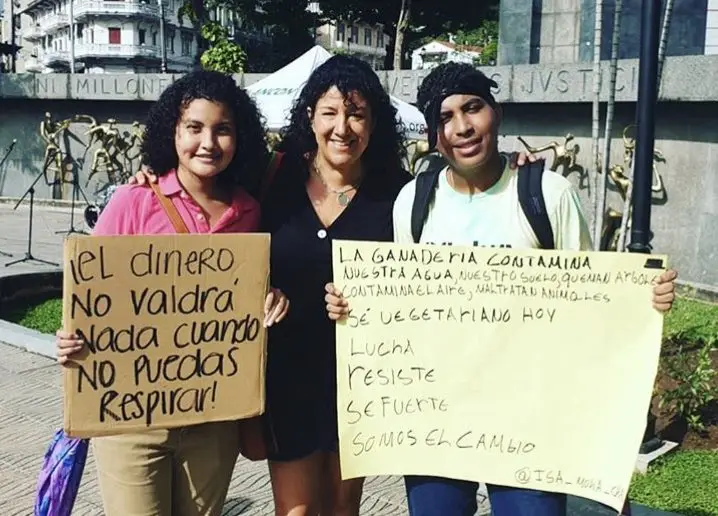 NI MILLONE
JUSTICI
¡EL dinero
No valdrá
Nada cuando
NO Puedas
Respirar!
LA GANADERIA CONTAMINA
NUESTRA AGUA, NUESTRO SUELO, QUEMAN ARBOLE
CONTAMINA EL AIRE, MALTRATAN ANIMALES
SÉ VEGETARIANO HOY
LUCHA
resiste
SE FUERTE
SOMOS EL CAMBIO